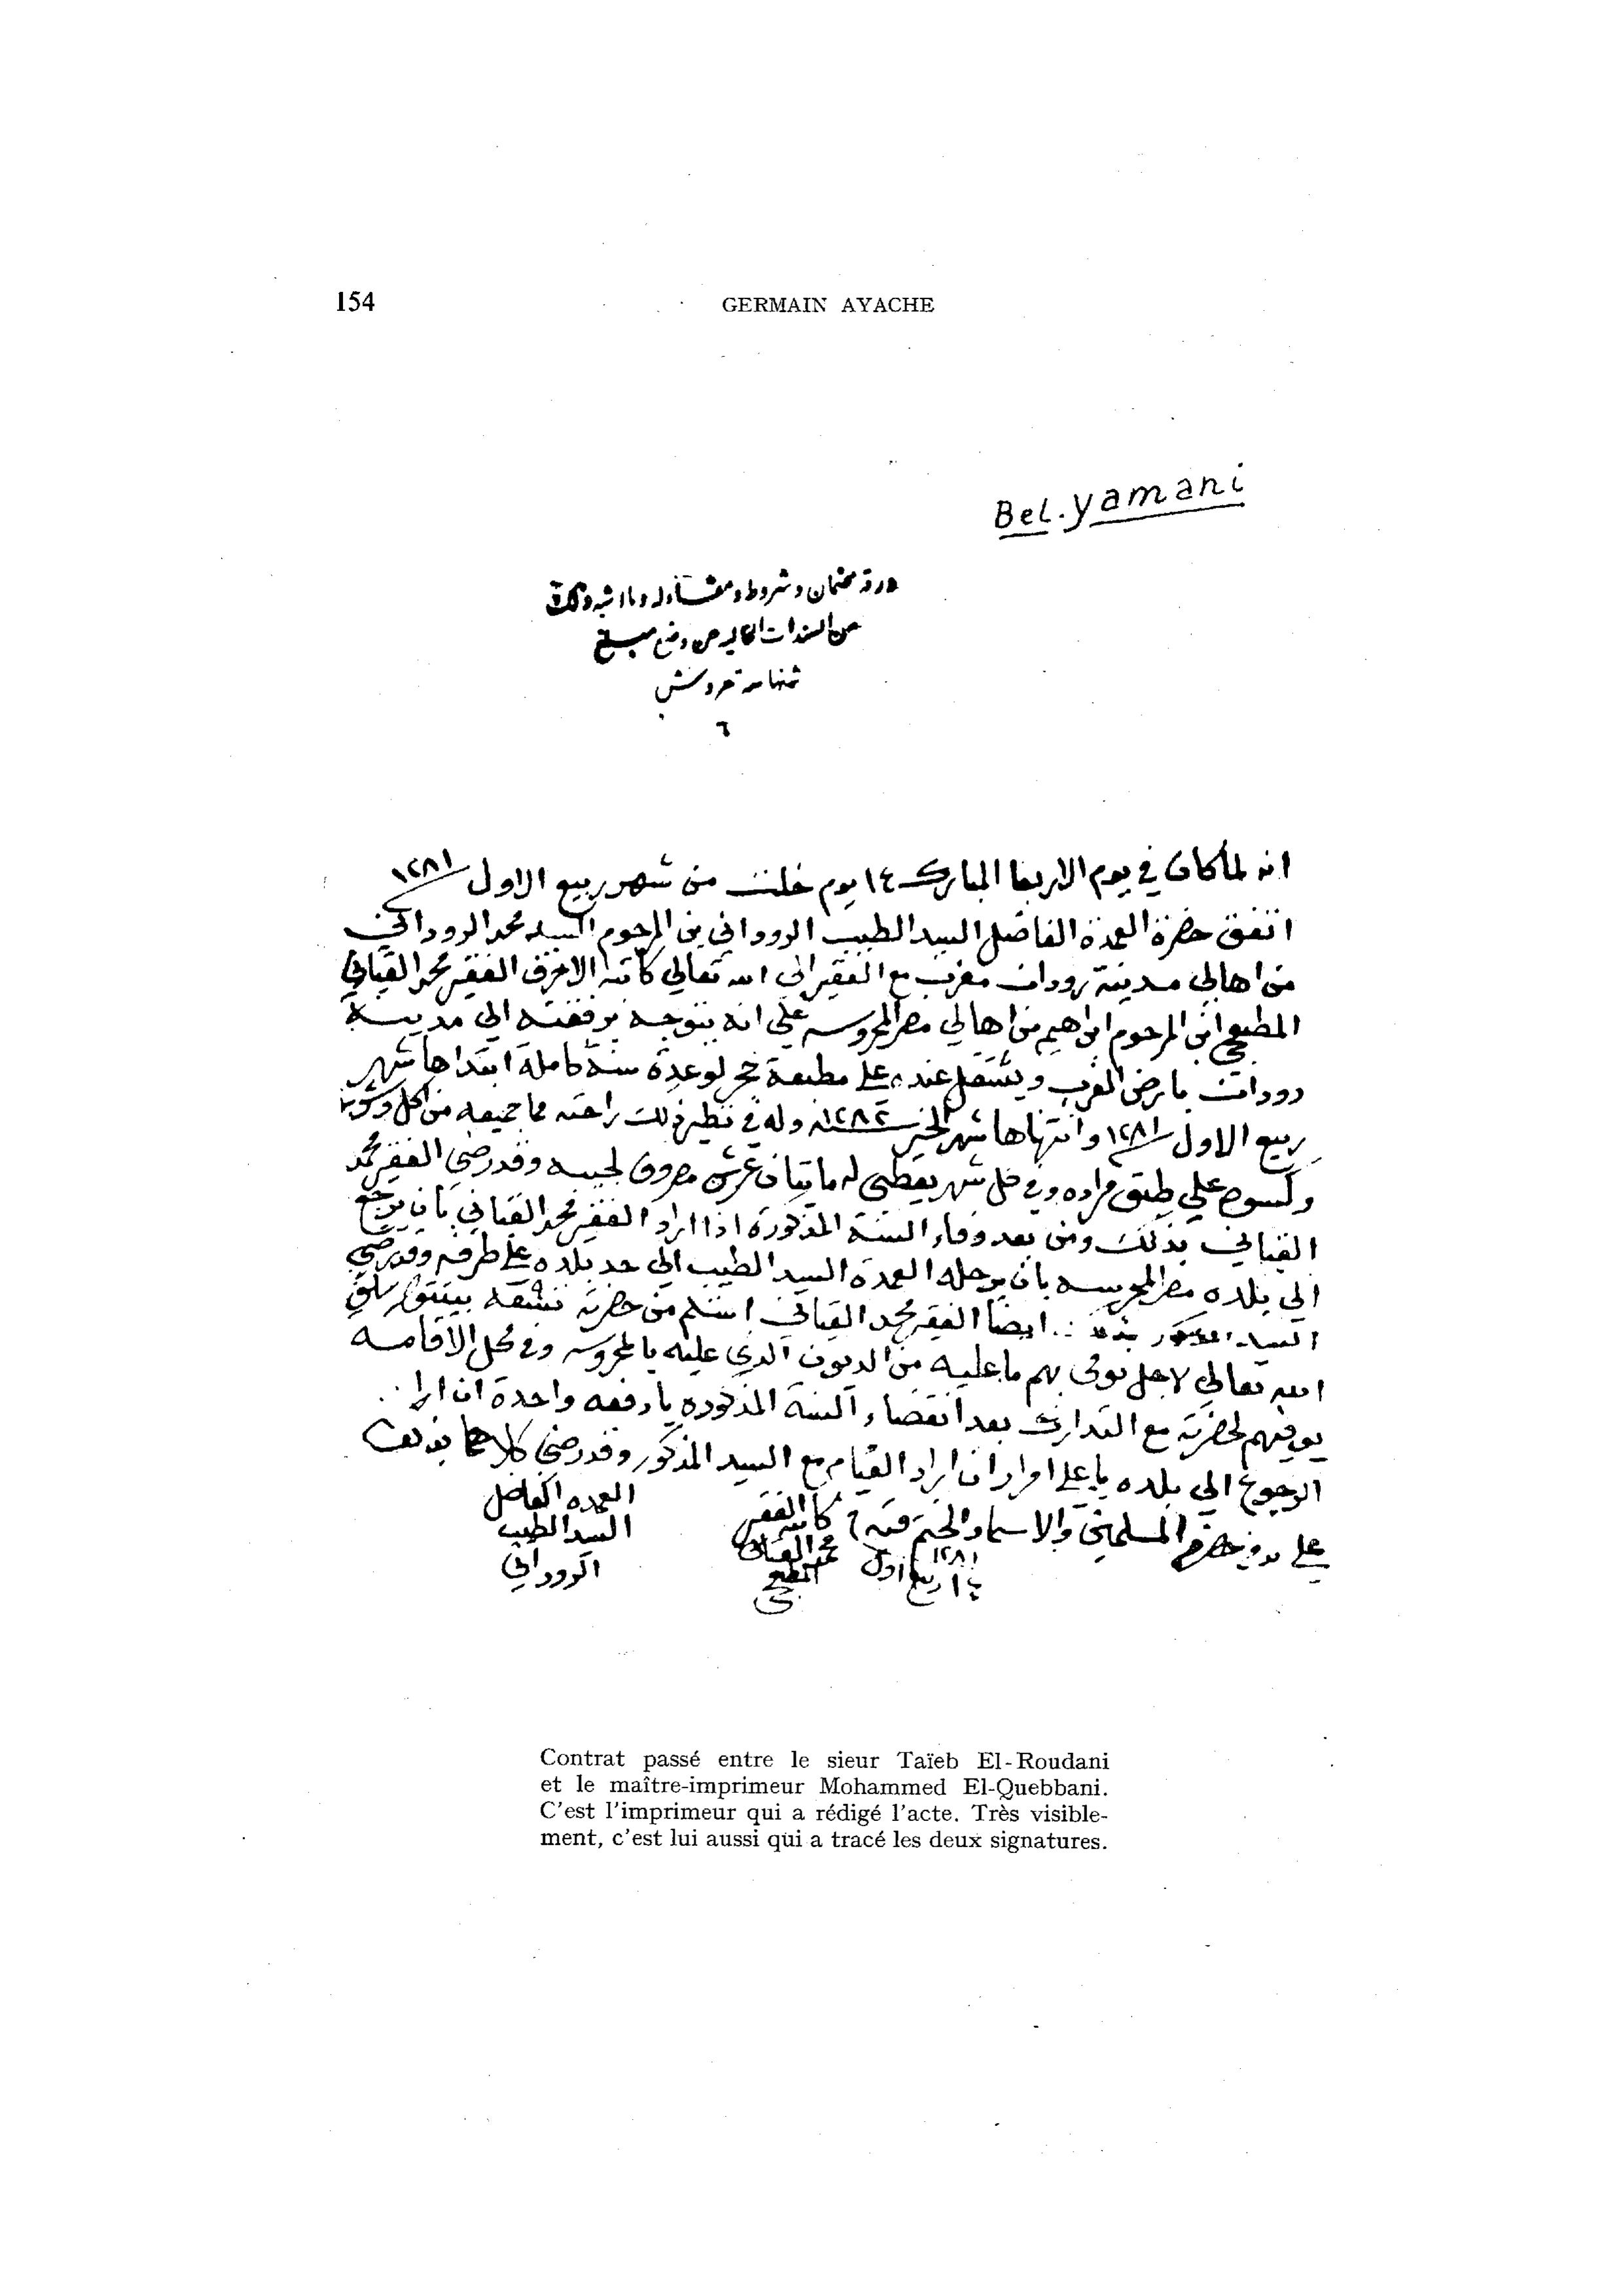 154
GERMAIN AYACHE
Bel.yamani
ورقة ضمان وشروط ومقاوله وما اشبه ذلك
من السندات الخاليه من وضع مبلغ
ثمنها ستة قروش
٦
انه لما كان في يوم الاربعا المبارك ١٤ يوم خلت من شهر ربيع الاول ١٢٨١
اتفق حضرة العمدة الفاضل السيد الطيب الروداني بن المرحوم السيد محمد الروداني
من اهالي مدينة رودان مغرب مع الفقير الى الله تعالي كاتبه الاحرف الفقير محمد القباني
المطبعجي ابن المرحوم ابراهيم من اهالي مصر المحروسه علي انه يتوجه برفقته الي مدينة
رودانت بارض الغرب ويشتغل عنده علي مطبعة حجر لوعدة سنة كاملة ابتداها شهر
ربيع الاول ١٢٨١ وانتهاها شهر الخير ١٢٨٢ وله في نظير ذلك راحته مما جميعه من اكل وشرب
وكسوه علي طبق مراده وفي كل شهر يعطي له مايتان غرش مصروف لجيبه وقد رضي الفقير محمد
القباني بذلك ومن بعد وفاء السنة المذكورة اذا اراد الفقير محمد القباني بان يرجع
الي بلده مصر المحروسه بان يرحله العمدة السيد الطيب الي حد بلده علي طرفه وقد رضي
السيد المذكور بذلك ايضا الفقير محمد القباني استلم من حضرته
الله تعالي لاجل يوفي بهم ما عليه من الديون الذي عليه بالمحروسه وفي محل الاقامه
يوفيهم لحضرته مع التدارك بعد انقضاء السنة المذكوره يا دفعه واحدة ان اراد
الرجوع الي بلده يا علي امرار ان اراد القيام مع السيد المذكور وقد رضي كلاهما بذلك
علي يد حضرة المسلمين والاسماء والختم فيه
١٤ ربيع اول ١٢٨١
كاتبه الفقير
محمد القباني
المطبعجي
العمده الفاضل
السيد الطيب
الروداني
Contrat passé entre le sieur Taïeb El-Roudani
et le maître-imprimeur Mohammed El-Quebbani.
C'est l'imprimeur qui a rédigé l'acte. Très visible-
ment, c'est lui aussi qui a tracé les deux signatures.